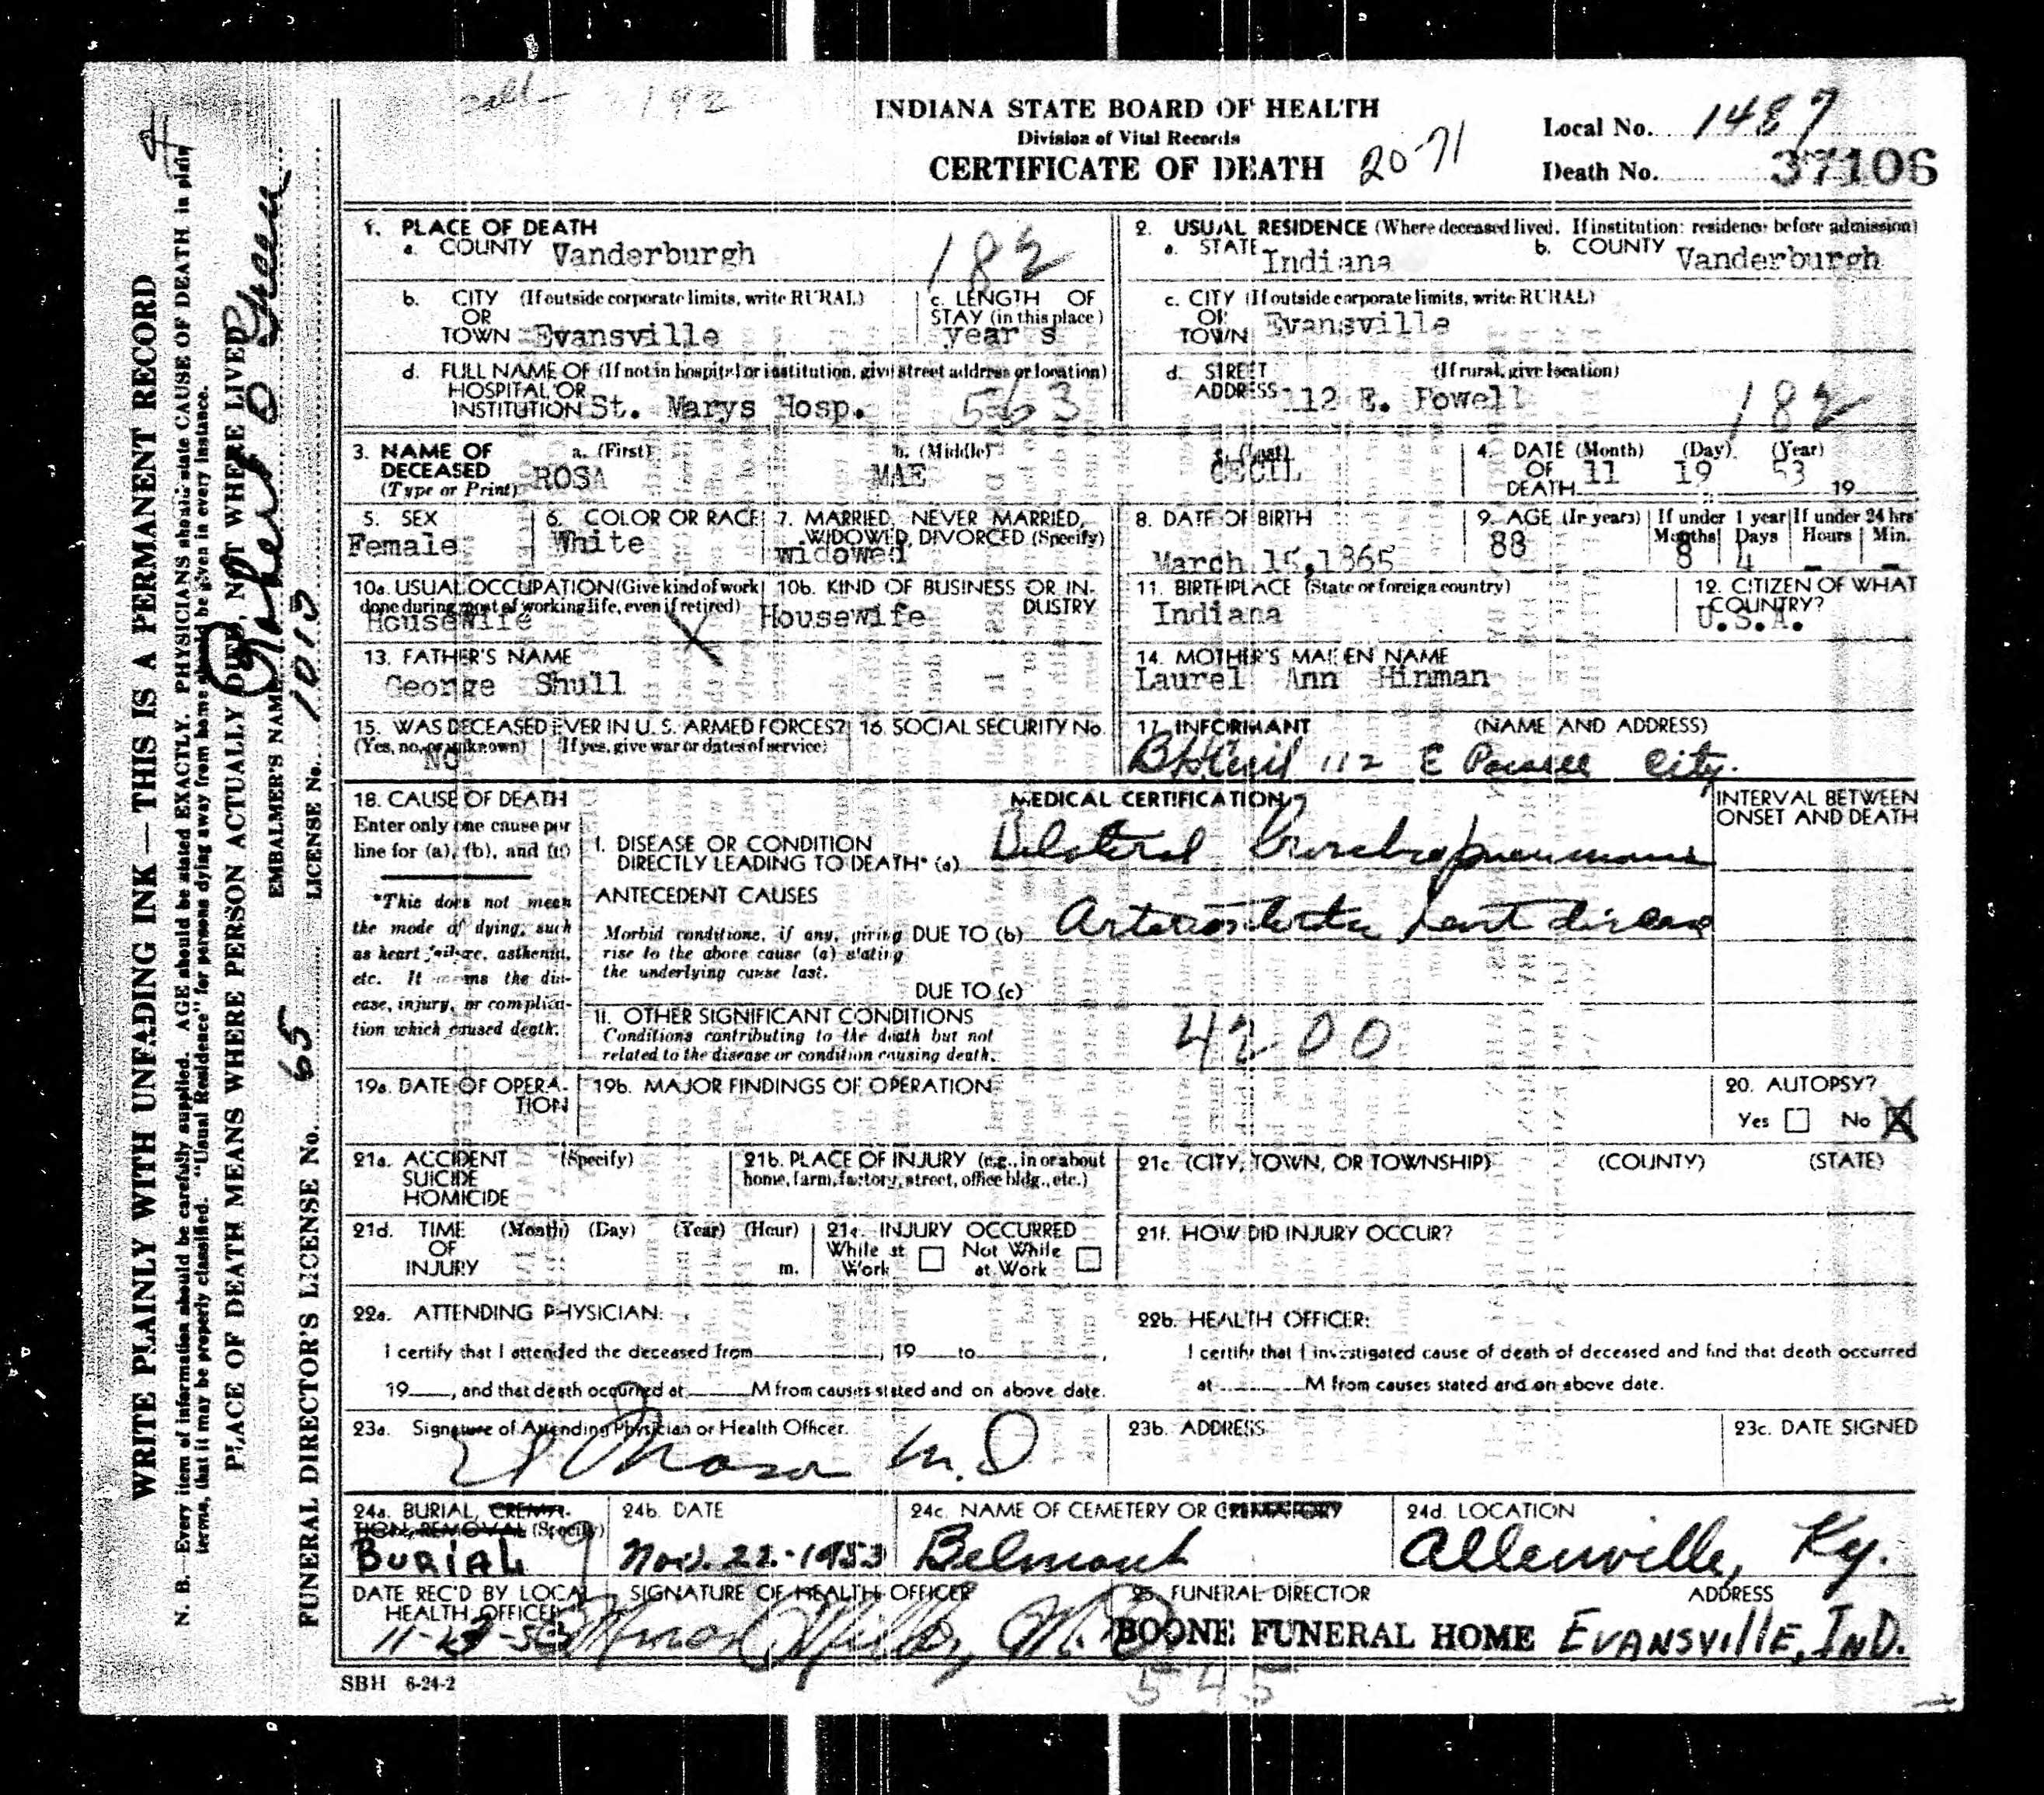 192
INDIANA STATE BOARD OF HEALTH
Division of Vital Records
CERTIFICATE OF DEATH 20-71
Local No. 1487
Death No. 37106
1. PLACE OF DEATH
a. COUNTY Vanderburgh 182
2. USUAL RESIDENCE (Where deceased lived. If institution: residence before admission)
a. STATE Indiana b. COUNTY Vanderburgh
b. CITY (If outside corporate limits, write RURAL)
OR
TOWN Evansville
c. LENGTH OF
STAY (in this place)
years
c. CITY (If outside corporate limits, write RURAL)
OR
TOWN Evansville
d. FULL NAME OF (If not in hospital or institution, give street address or location)
HOSPITAL OR
INSTITUTION St. Marys Hosp. 563
d. STREET (If rural, give location)
ADDRESS 112 E. Powell 182
3. NAME OF
DECEASED
(Type or Print)
a. (First) b. (Middle) c. (Last)
ROSA MAE CECIL
4. DATE (Month) (Day) (Year)
OF
DEATH 11 19 53 19
5. SEX
Female
6. COLOR OR RACE
White
7. MARRIED, NEVER MARRIED,
WIDOWED, DIVORCED (Specify)
widowed
8. DATE OF BIRTH
March 15, 1865
9. AGE (In years)
88
If under 1 year
Months Days
8 4
If under 24 hrs
Hours Min.
- -
10a. USUAL OCCUPATION (Give kind of work
done during most of working life, even if retired)
Housewife
10b. KIND OF BUSINESS OR IN-
DUSTRY
Housewife
11. BIRTHPLACE (State or foreign country)
Indiana
12. CITIZEN OF WHAT
COUNTRY?
U.S.A.
13. FATHER'S NAME
George Shull
14. MOTHER'S MAIDEN NAME
Laurel Ann Hinman
15. WAS DECEASED EVER IN U. S. ARMED FORCES?
(Yes, no, or unknown) (If yes, give war or dates of service)
NO
16. SOCIAL SECURITY No.
17. INFORMANT (NAME AND ADDRESS)
Cecil 112 E Powell City.
18. CAUSE OF DEATH
Enter only one cause per
line for (a), (b), and (c)
*This does not mean
the mode of dying, such
as heart failure, asthenia,
etc. It means the dis-
ease, injury, or complica-
tion which caused death.
MEDICAL CERTIFICATION
INTERVAL BETWEEN
ONSET AND DEATH
I. DISEASE OR CONDITION
DIRECTLY LEADING TO DEATH* (a) Bilateral Bronchopneumonia
ANTECEDENT CAUSES
Morbid conditions, if any, giving
rise to the above cause (a) stating
the underlying cause last.
DUE TO (b) Arteriosclerotic heart disease
DUE TO (c)
II. OTHER SIGNIFICANT CONDITIONS
Conditions contributing to the death but not
related to the disease or condition causing death.
4200
19a. DATE OF OPERA-
TION
19b. MAJOR FINDINGS OF OPERATION
20. AUTOPSY?
Yes No X
21a. ACCIDENT (Specify)
SUICIDE
HOMICIDE
21b. PLACE OF INJURY (e.g., in or about
home, farm, factory, street, office bldg., etc.)
21c. (CITY, TOWN, OR TOWNSHIP) (COUNTY) (STATE)
21d. TIME (Month) (Day) (Year) (Hour)
OF
INJURY m.
21e. INJURY OCCURRED
While at Work Not While at Work
21f. HOW DID INJURY OCCUR?
22a. ATTENDING PHYSICIAN:
I certify that I attended the deceased from , 19 to ,
19 , and that death occurred at M from causes stated and on above date.
22b. HEALTH OFFICER:
I certify that I investigated cause of death of deceased and find that death occurred
at M from causes stated and on above date.
23a. Signature of Attending Physician or Health Officer.
M.D
23b. ADDRESS
23c. DATE SIGNED
24a. BURIAL, CREMA-
TION, REMOVAL (Specify)
BURIAL
24b. DATE
Nov. 22-1953
24c. NAME OF CEMETERY OR CREMATORY
Belmont
24d. LOCATION
Allenville, Ky.
DATE REC'D BY LOCAL
HEALTH OFFICER
SIGNATURE OF HEALTH OFFICER
25. FUNERAL DIRECTOR ADDRESS
BOONE FUNERAL HOME EVANSVILLE, IND.
SBH 6-24-2
545
WRITE PLAINLY WITH UNFADING INK—THIS IS A PERMANENT RECORD
N. B.—Every item of information should be carefully supplied. AGE should be stated EXACTLY. PHYSICIANS should state CAUSE OF DEATH in plain
terms, that it may be properly classified. "Usual Residence" for persons dying away from home should be given in every instance.
PLACE OF DEATH MEANS WHERE PERSON ACTUALLY DIED, NOT WHERE LIVED
EMBALMER'S NAME
FUNERAL DIRECTOR'S LICENSE No. 65 LICENSE No. 1013